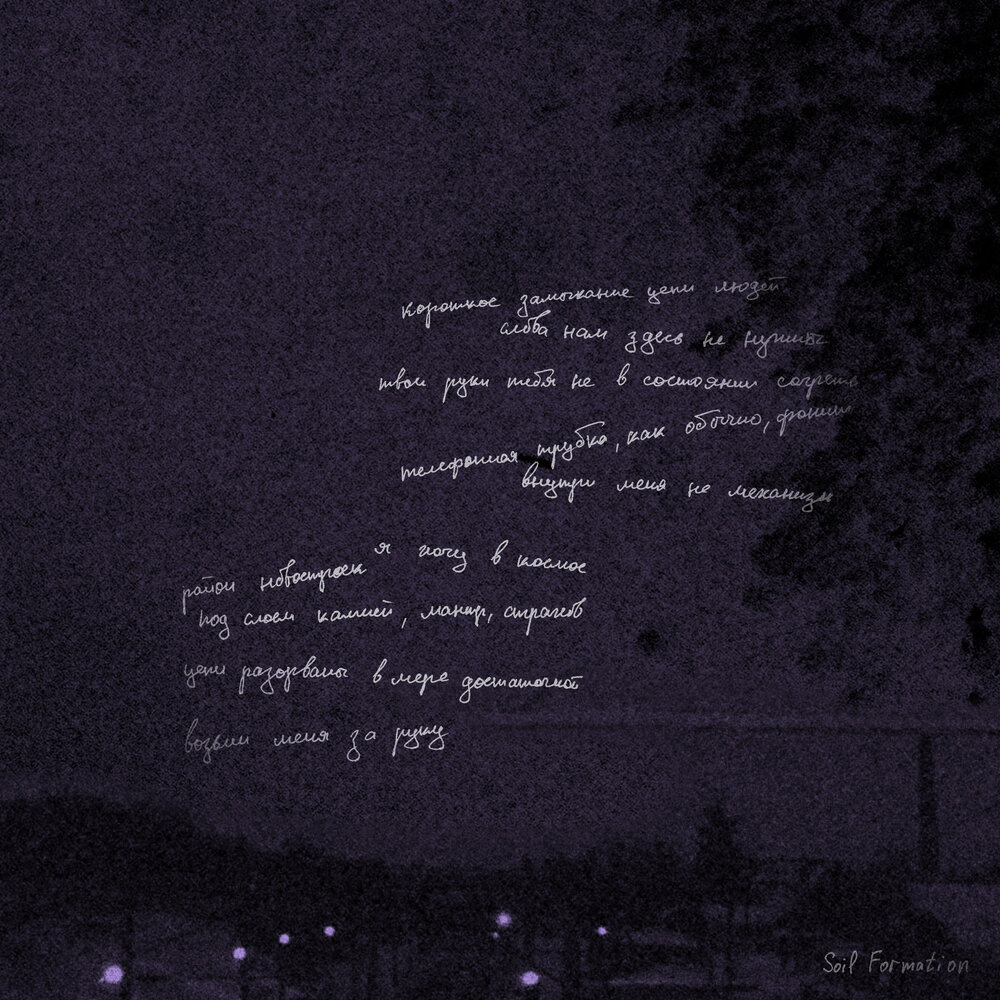 короткое замыкание цепи людей
слова нам здесь не нужны
твои руки тебя не в состоянии согреть
телефонная трубка, как обычно, фонит
внутри меня не механизм
я хочу в космос
район новостроек
под слоем камней, манер, страхов
цепи разорваны в мере достаточной
возьми меня за руку
Soil Formation